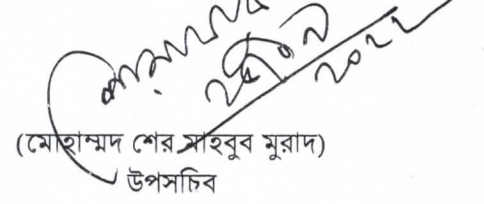 ২০২২
(মোহাম্মদ শের মাহবুব মুরাদ)
উপসচিব